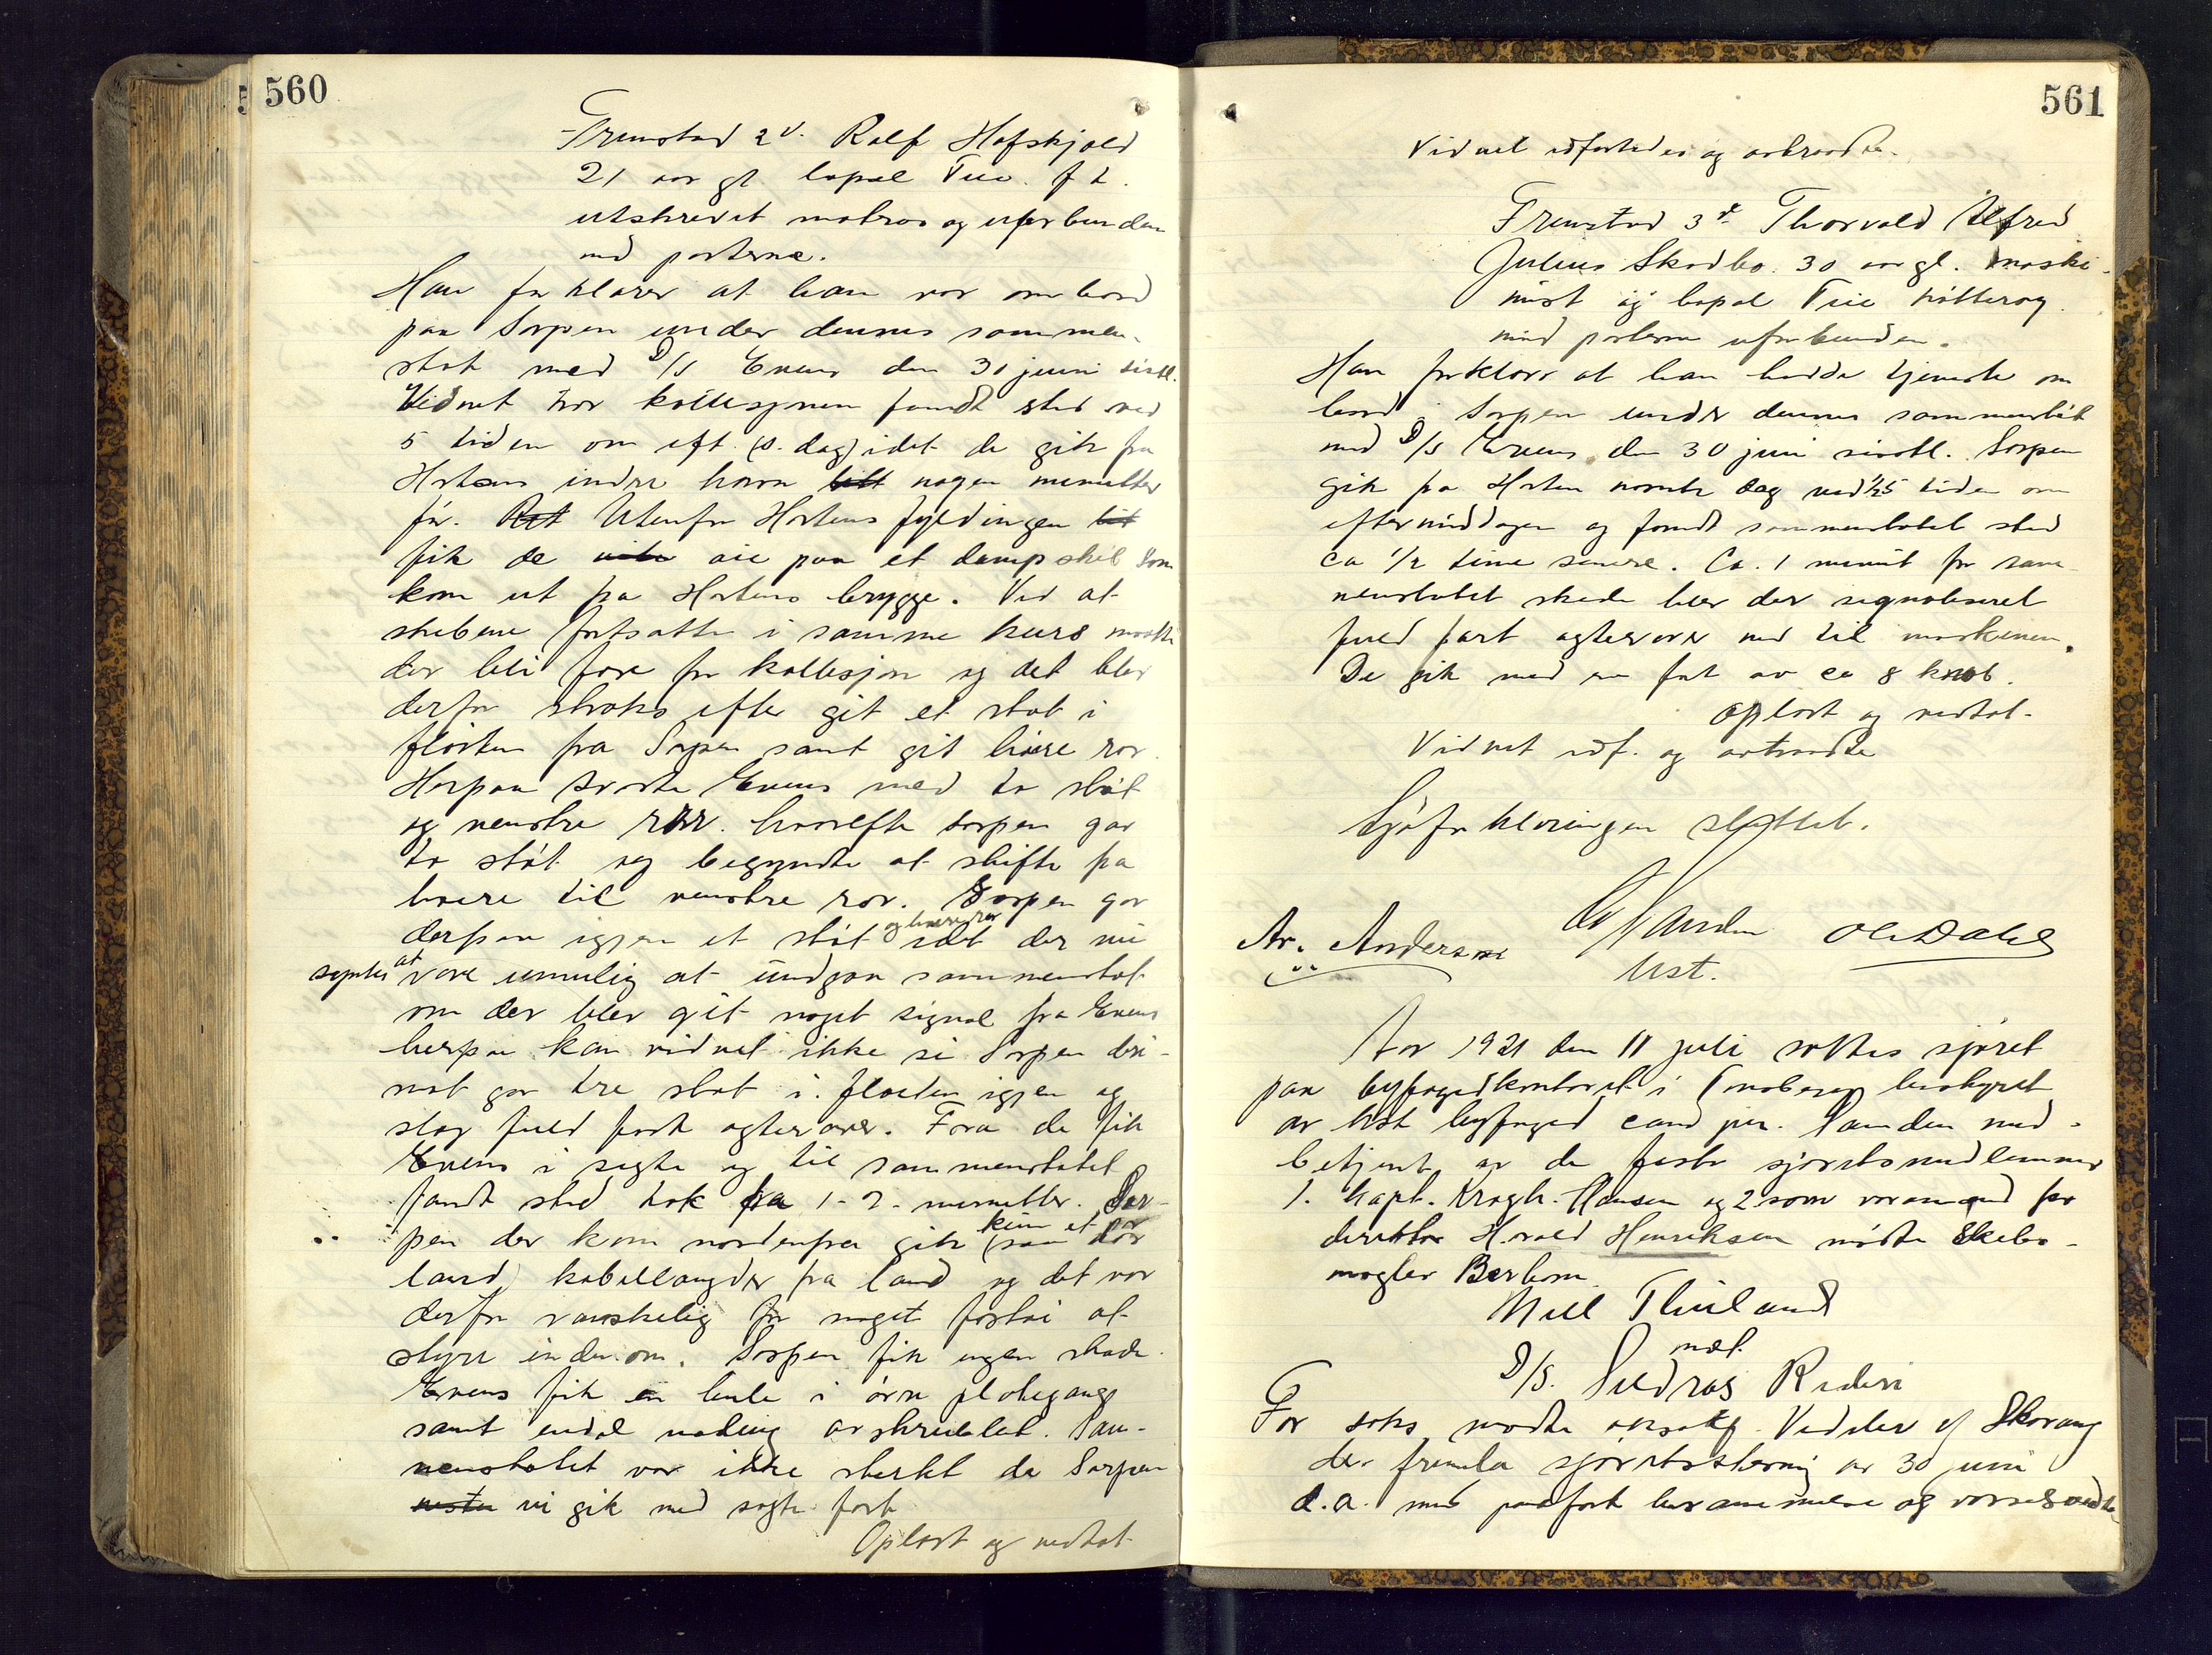 560
Fremstod 2 v. Rolf Hafskjold
21 aar gl bopæl Tice f t.
utskrevet matros og uforbunden
med parterne.
Han forklarer at han var ombord
paa Sarpen under dennes sammen-
støt med D/S Evens den 30 juni sidstl.
Vidnet tror kollisjonen fandt sted ved
5 tiden om eft. (s. dag) idet de gik fra
Hortens indre havn nogen minutter
før. Utenfor Hortens fyldingen
fik de øie paa et dampskib som
kom ut fra Hortens brygge. Ved at
skibene fortsatte i samme kurs maatte
der bli fare for kollisjon og det blev
derfor straks efter git et støt i
fløiten fra Sarpen samt git høire ror.
Herpaa svarte Evens med to støt
og venstre ror. hvorefter Sarpen gav
to støt og begyndte at skifte fra
høire til venstre ror. Sarpen gav
derpaa igjen et støt og høire ror idet der nu
syntes at være umulig at undgaa sammenstøt
om der blev git noget signal fra Evens
herpaa kan vidnet ikke si Sarpen der-
mot gav tre støt i fløiten igjen og
slog fuld fart agterover. Fra de fik
Evens i sigte og til sammenstøtet
fandt sted tok ca 1-2 minutter. Sar-
pen der kom nordenfra gik kun et par
kabellængder fra land og det var
derfor vanskelig for noget fartøi at
styre indenom. Sarpen fik ingen skade.
Evens fik en bule i øvre plategang
samt endel maling avskrubbet. Sam-
menstøtet var ikke sterkt da Sarpen
vi gik med sagte fart
Oplæst og vedtat
561
Vidnet edfæstedes og avtraadte.
Fremstod 3 v. Thorvald Alfred
Julius Skodbo 30 aar gl. maski-
nist og bopæl
med parterne uforbunden.
Han forklarer at han hadde tjeneste om
bord i Sarpen under dennes sammenstøt
med D/S Evens den 30 juni sidstl. Sarpen
gik fra Horten nævnte dag ved ½5 tiden om
eftermiddagen og fandt sammenstøtet sted
ca ½ time senere. Ca. 1 minut før sam-
menstøtet skede blev der signaliseret
fuld fart agterover ned til maskinen.
De gik med en fart av ca 8 knob.
Oplæst og vedtat.
Vidnet edf. og avtraadte
Sjøforklaringen sluttet.
Ar. Andersen Sanden O C Dahl
kst.
Aar 1921 den 11 juli sattes sjøret
paa byfogedkontoret i Tønsberg bestyret
av kst byfoged cand jur. Sanden med-
betjent av de faste sjøretsmedlemmer
1. Kapt. Krogh-Hansen og 2 som varamand for
direktør Harald Henriksen møtte Skibs-
mægler Berbom
Niel Thiiland
mot
D/S. Sildras Rederi
For saks. møtte oksakf. Vedeler og Skovang
der fremla sjøretsstevning av 30 juni
d.a. med paaført berammelse og varsel vedta